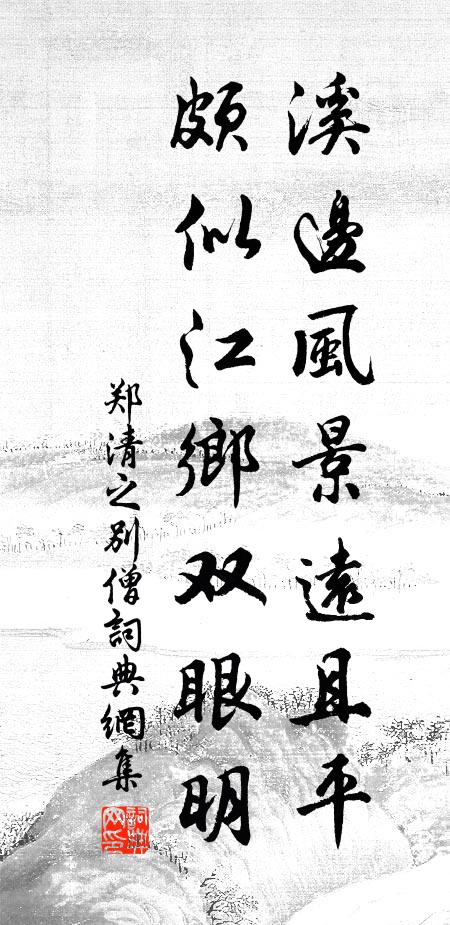 溪邊風景遠且平
頗似江鄉双眼明
郑清之别僧詞典網集